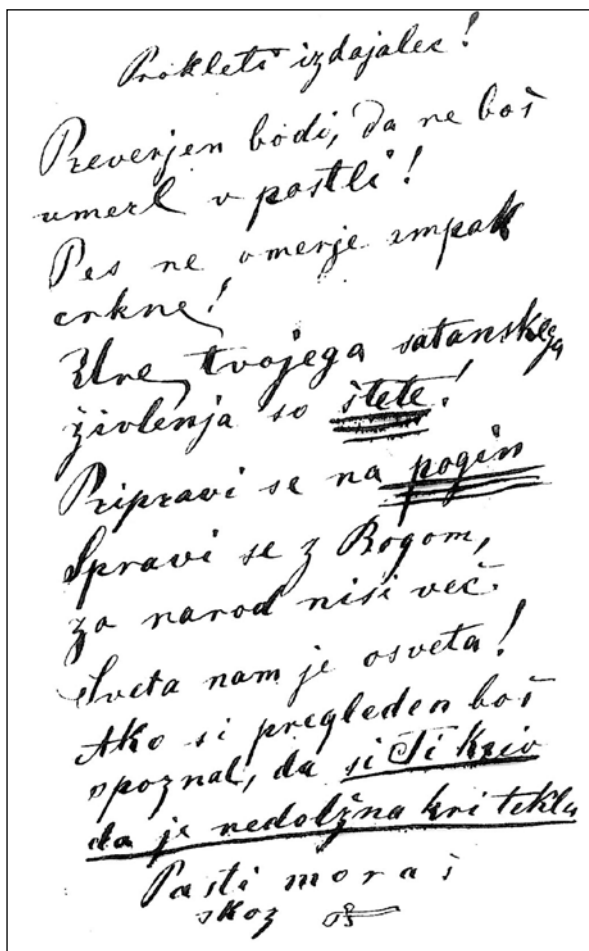 Prokleti izdajalec!
Preverjen bodi, da ne boš
umerl v postli!
Pes ne omerje ampak
crkne!
Ure tvojega satanskega
živlenja so štete!
Pripravi se na pogin
Spravi se z Bogom,
za narod nisi več.
Sveta nam je osveta!
Ako si pregleden boš
spoznal, da si Ti kriv
da je nedolžna kri tekla
Pasti moraš
skoz